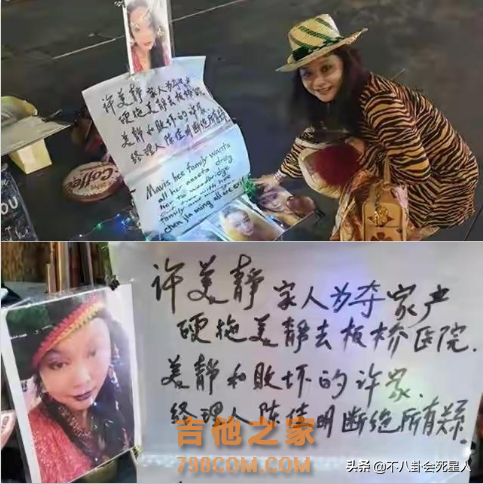 许美静家人为夺家产
硬拖美静去板桥医院
美静和败坏的许家.
经理人陈佳明断绝所有关系
Mavis hee family wants
all her assets drag
her to woodbridge
chen jia ming all are evil
Coffee
YOU
许美静家人为夺家产
硬拖美静去板桥医院.
美静和败坏的许家.
经理人陈佳明断绝所有关系.
吉他之家
798COM.COM
头条 @不八卦会死星人